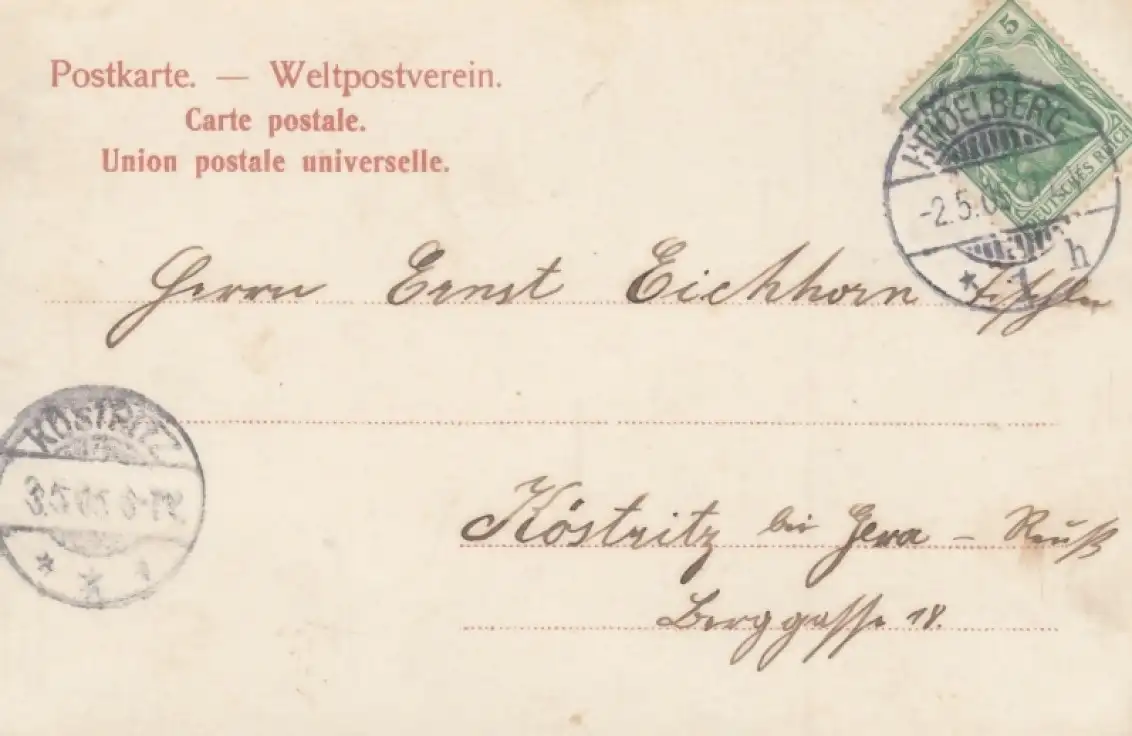 Postkarte. — Weltpostverein.
Carte postale.
Union postale universelle.
5
DEUTSCHES REICH
HEIDELBERG
-2.5.05
* 1 h
Herrn Ernst Eichhorn Tischler
KÖSTRITZ
3.5.05 8-
Köstritz bei Gera - Reuß
Berggasse 18.